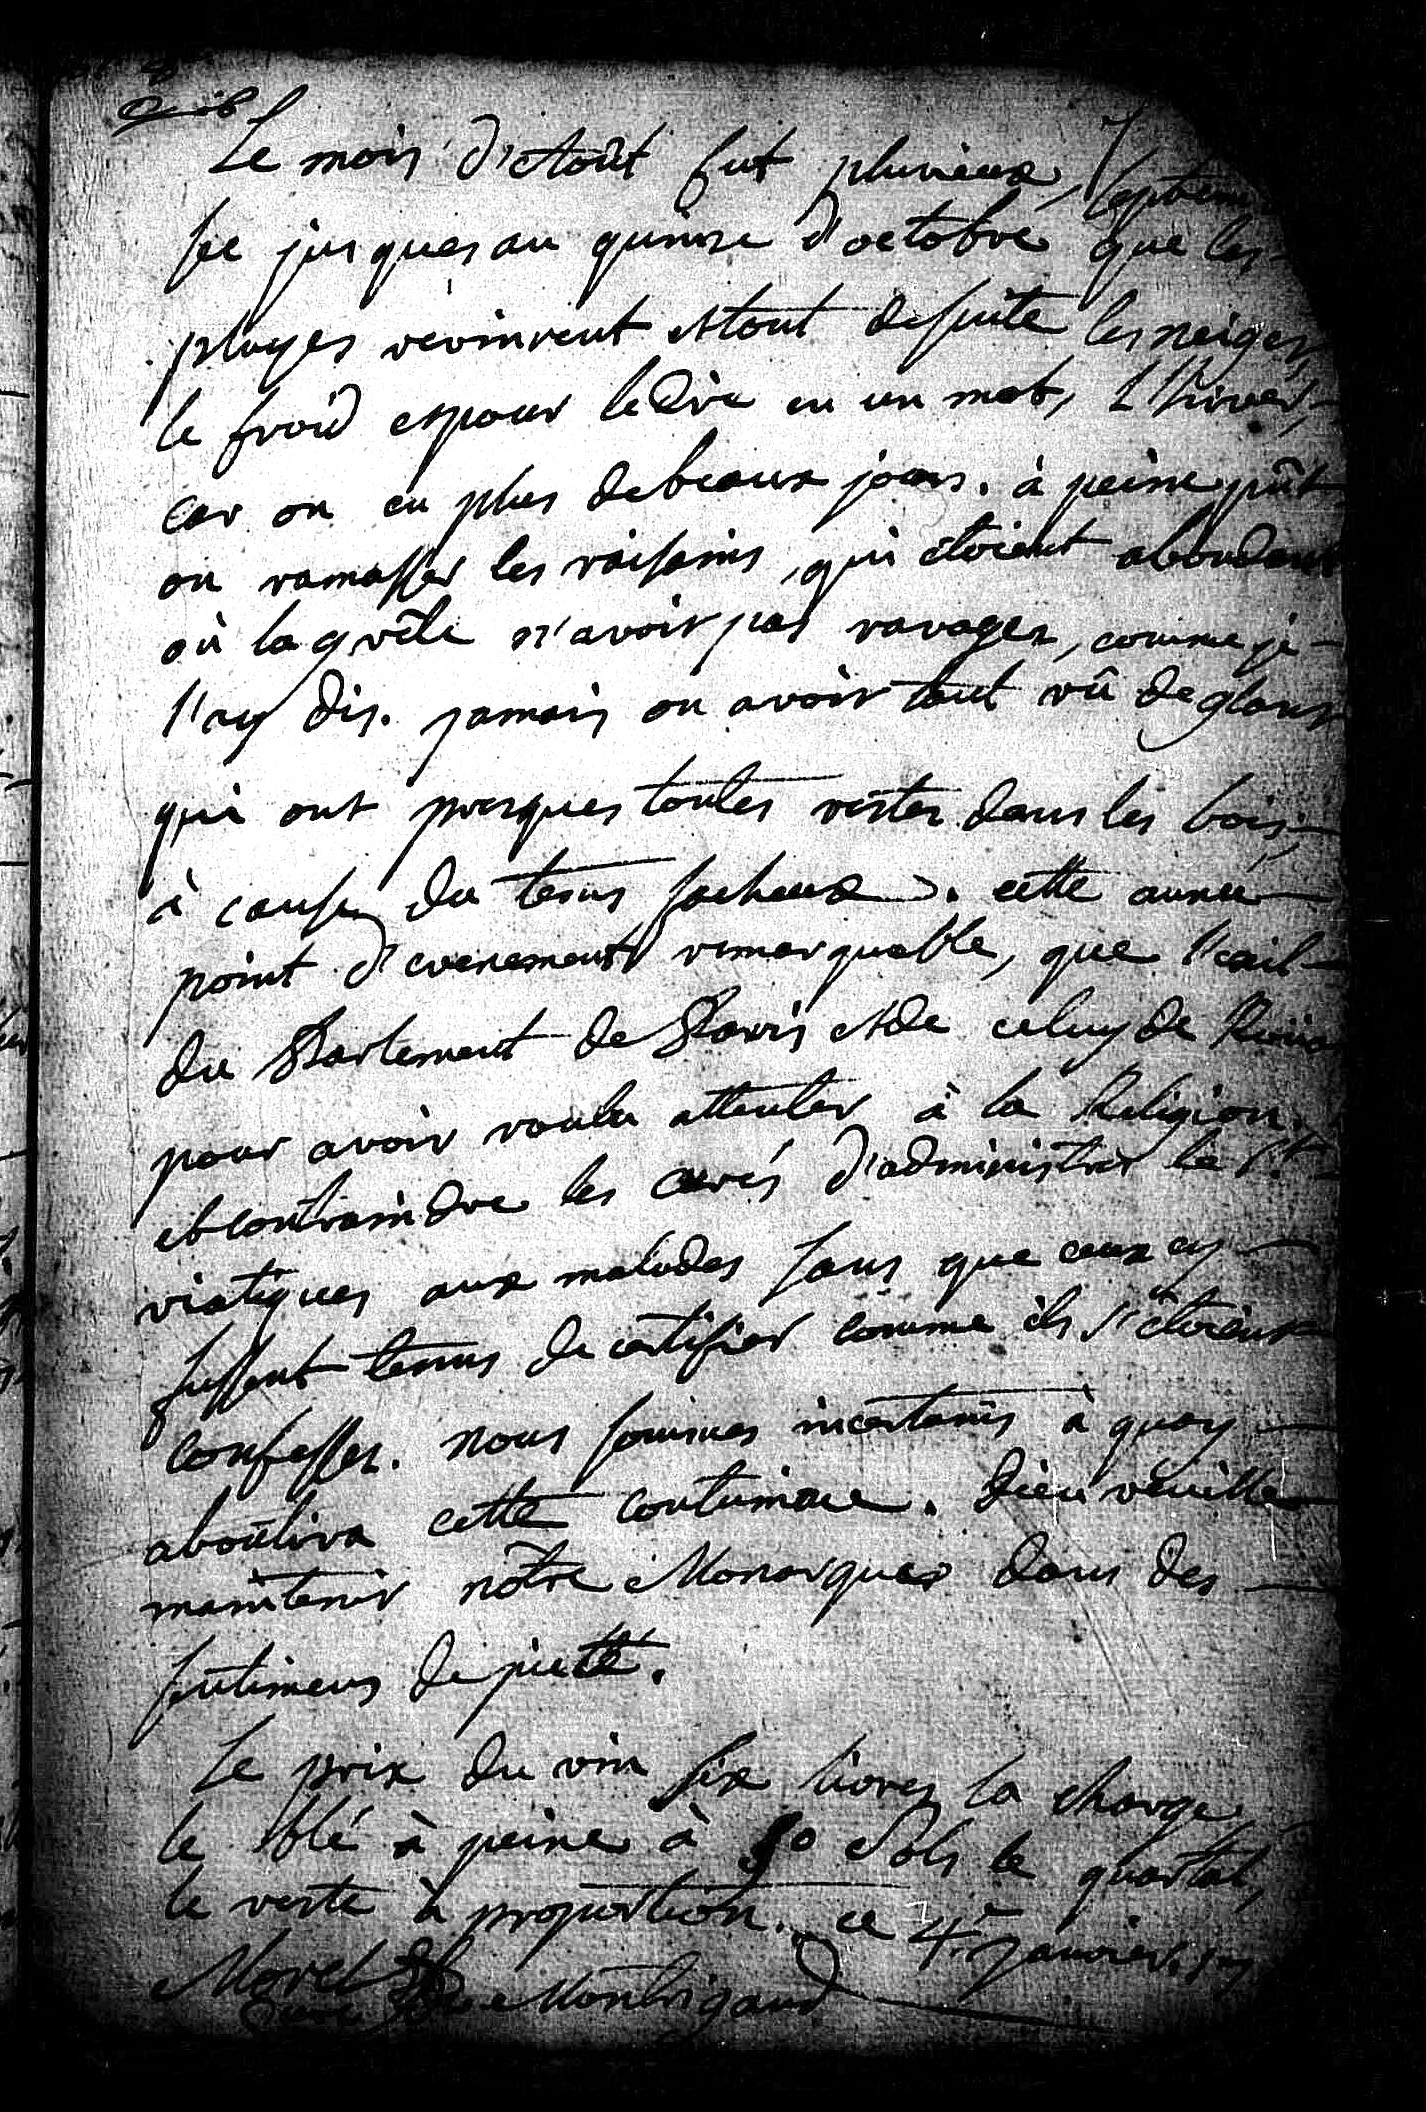 Le mois d'Aoüt fut pluvieux, Septem
sec jusques au quinze d'octobre que les
pluyes revinrent et tout de suite les neiges,
le froid et pour le dire en un mot, l'hiver,
car on eu plus de beaux jours. à peine pût
on ramasser les raisains, qui étoient abondans
où la grêle n'avoit pas ravagez, comme je
l'ay dis. jamais on avoit tant vû de glans
qui ont presques toutes restez dans les bois,
à cause du tems facheux. cette année
point d'evenements remarquable, que l'exil
du Parlement de Paris et de celuy de Roüan
pour avoir voulu attenter à la Religion.
et contraindre les curés d'administrer le St
viatiques aux malades sans que ceux cy
fussent tenus de certifier comme ils s'étoient
confessez. nous sommes incertains à quoy
aboutira cette contumace. Dieu veuille
maintenir nôtre Monarque dans des
sentimens de pieté.
Le prix du vin six livres la charge
le blé à peine à 50 Sols le quartal,
le reste à proportion. ce 4e janvier
Morel Curé de Montrigaud